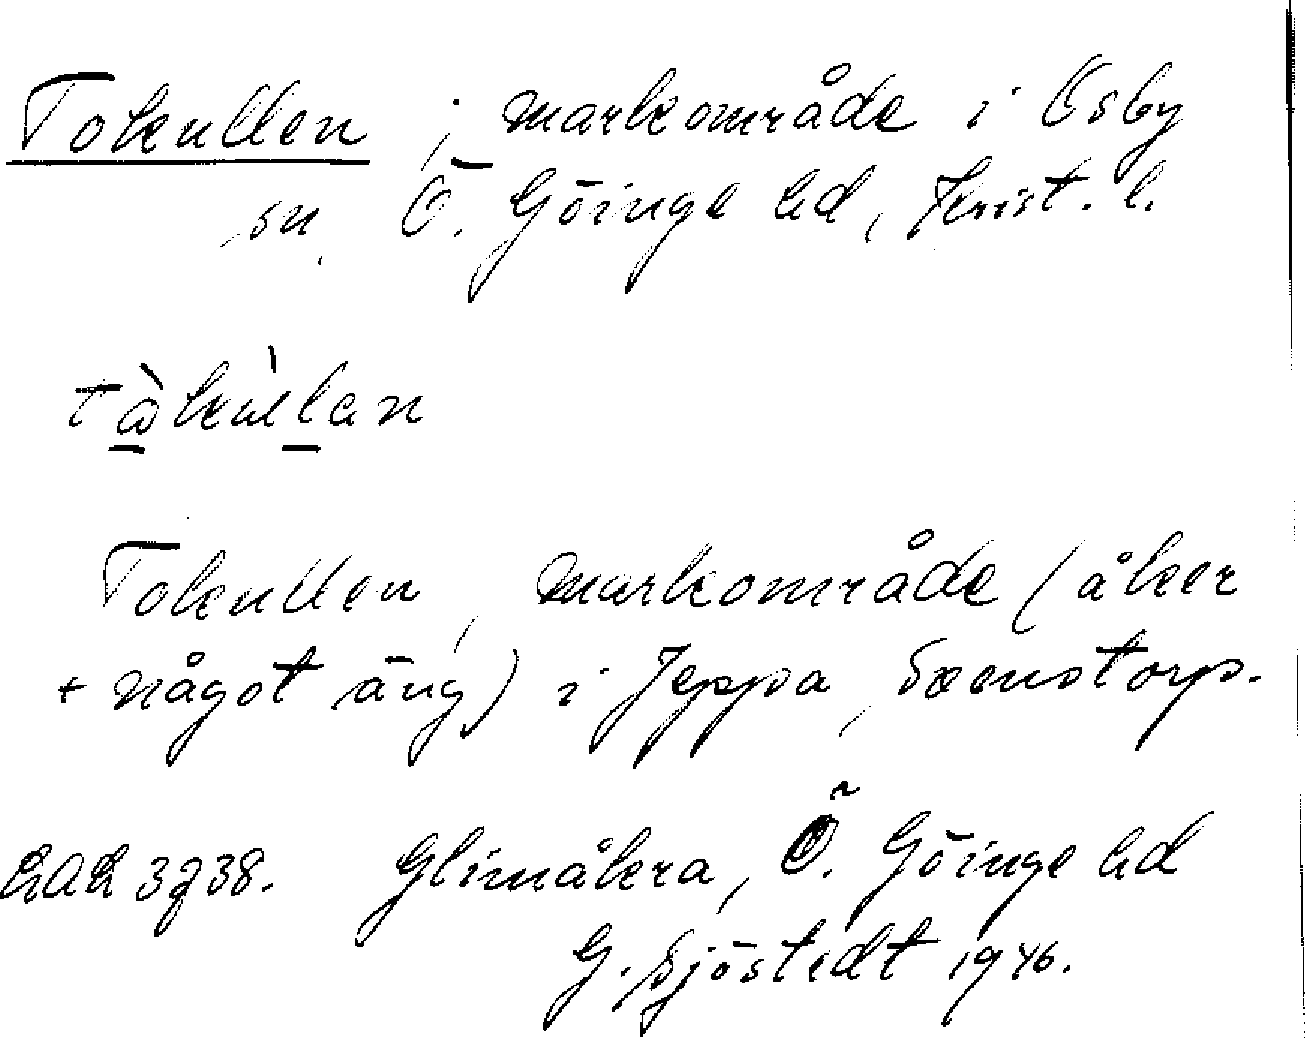 Tokullen, markområde i Osby
sn, Ö. Göinge hd, Krist. l.
tàkùlan
Tokullen, markområde (åker
+ något äng) i Jeppa, Svenstorps.
3738. Glimåkra, Ö. Göinge hd
G. Sjöstedt 1946.